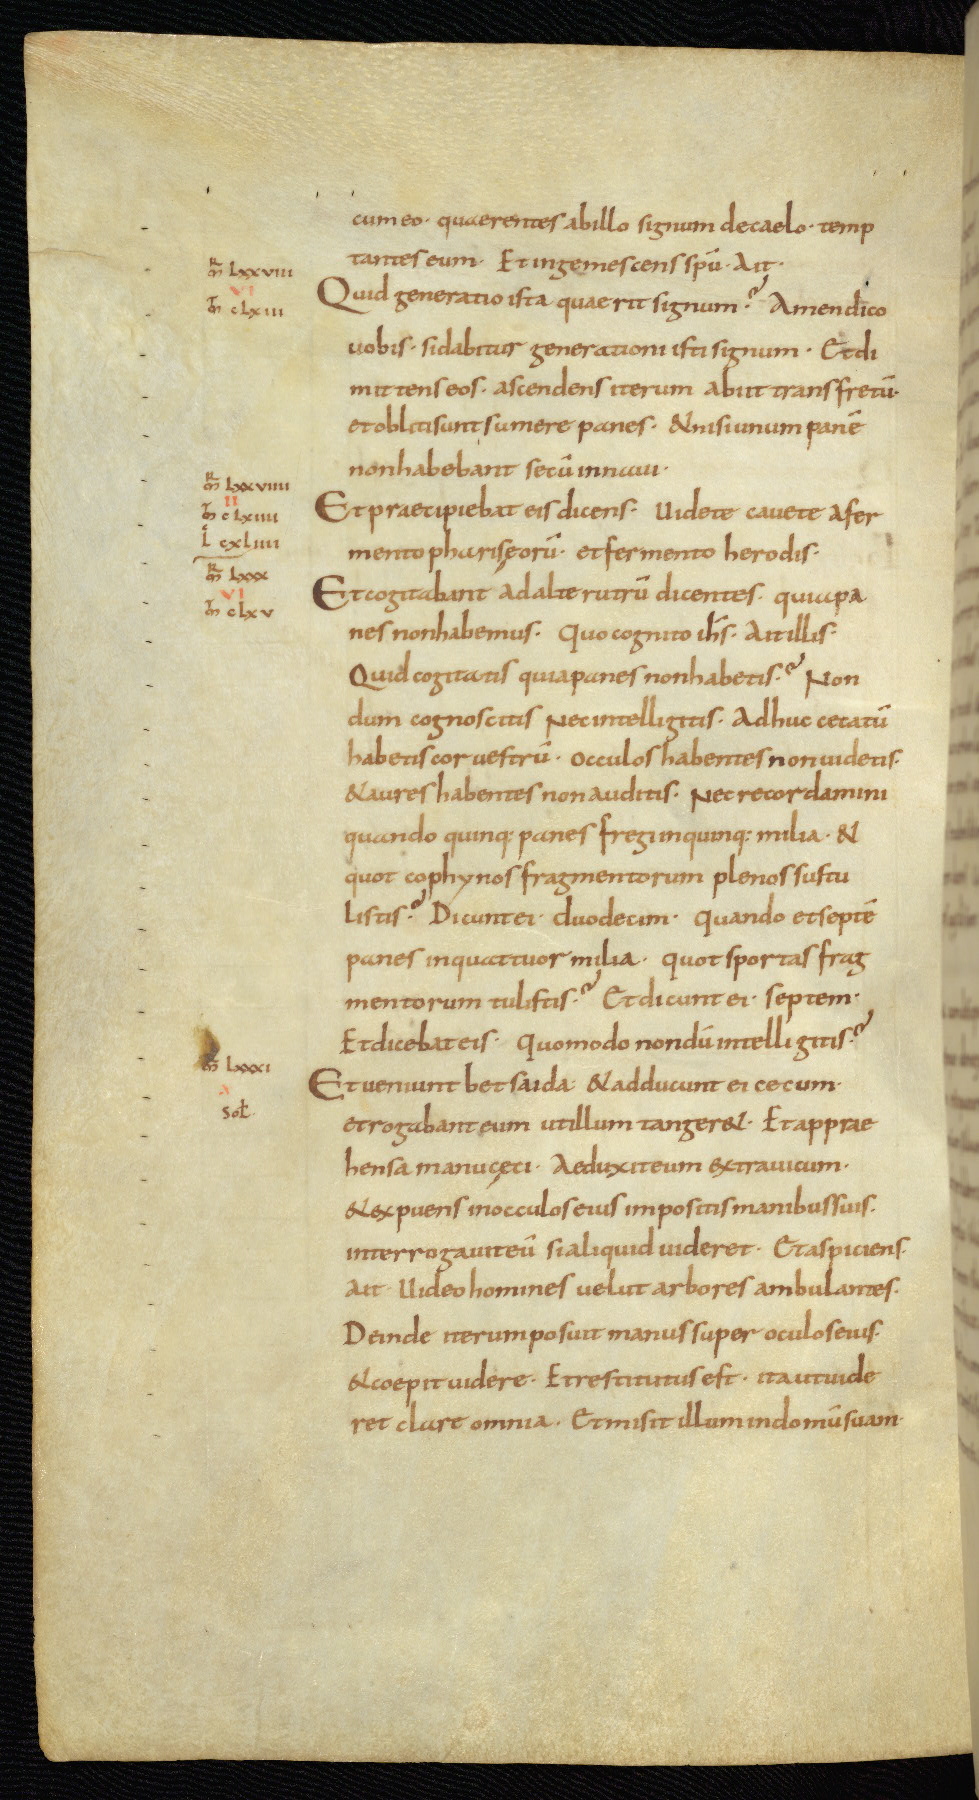 cum eo · quaerentes ab illo signum de caelo · temp
tantes eum · Et ingemescens spū · Ait ·
mr̄ lxxviii
vi
mt̄ clxiii
Quid generatio ista quaerit signum ·? Amen dīco
uobis · si dabitur generationi isti signum · Et di
mittens eos · ascendens iterum abiit trans fretū ·
et obliti sunt sumere panes · & nisi unum panē
non habebant secū in naui ·
mr̄ lxxviiii
ii
mt̄ clxiiii
L̄ cxliiii
Et praecipiebat eis dicens · Uidete cauete a fer
mento phariseorū · et fermento herodis ·
mr̄ lxxx
vi
mt̄ clxv
Et cogitabant ad alterutrū dicentes · quia pa
nes non habemus · Quo cognito ih̄s · Ait illis ·
Quid cogitatis quia panes non habetis ·? Non
dum cognoscitis Nec intelligitis · Adhuc cecatū
habetis cor uestrū · occulos habentes non uidetis ·
& aures habentes non auditis · Nec recordamini
quando quinq: panes fregi in quinq: milia · &
quot cophynos fragmentorum plenos sustu
listis ·? Dicunt ei · duodecim · Quando et septē
panes in quattuor milia · quot sportas frag
mentorum tulistis ·? Et dicunt ei · septem ·
Et dicebat eis · Quomodo nondū intelligitis ·?
mr̄ lxxxi
x
sol̄
Et ueniunt betsaida & adducunt ei cecum ·
et rogabant eum ut illum tanger& · Et apprae
hensa manu cęci · Aeduxit eum extra uicum ·
& expuens in occulos eius impositis manibus suis ·
interrogauit eū si aliquid uideret · Et aspiciens ·
ait · Uideo homines uelut arbores ambulantes ·
Deinde iterum posuit manus super oculos eius ·
& coepit uidere · Et restitutus est · ita ut uide
ret clare omnia · Et misit illum in domū suam ·